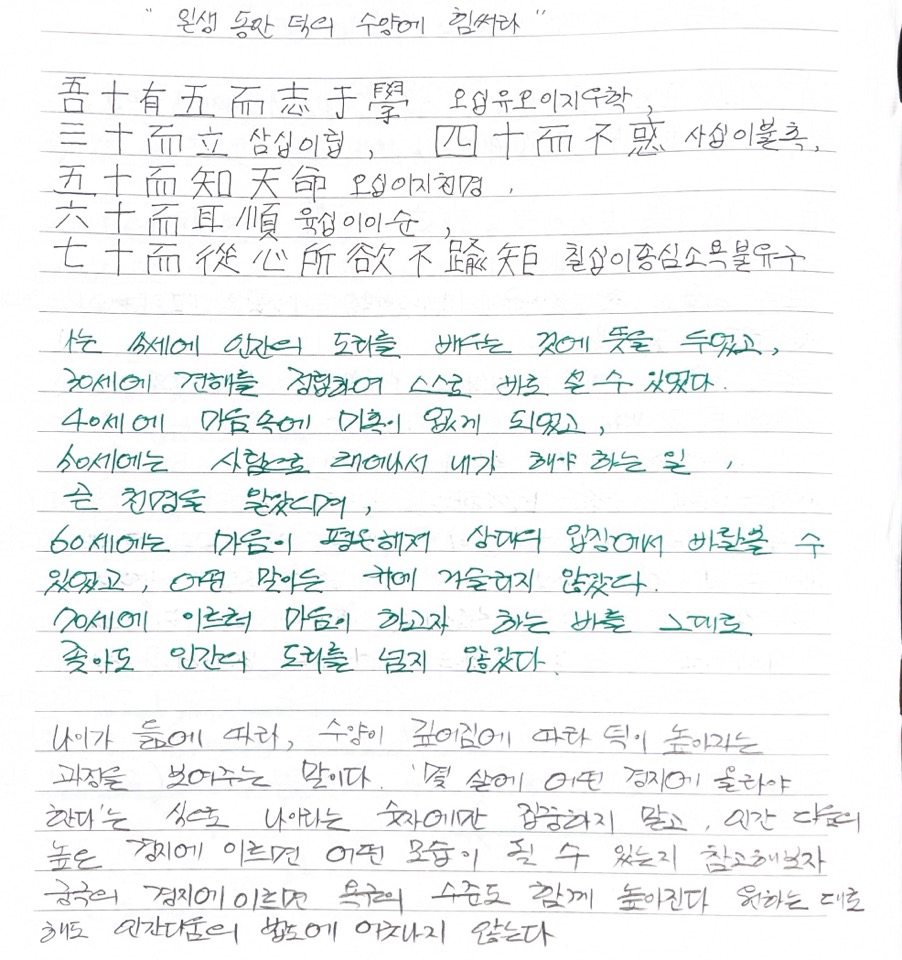 " 일생 동안 덕의 수양에 힘써라 "
吾十有五而志于學 오십유오이지우학,
三十而立 삼십이립, 四十而不惑 사십이불혹,
五十而知天命 오십이지천명,
六十而耳順 육십이이순,
七十而從心所欲不踰矩 칠십이종심소욕불유구
나는 15세에 인간의 도리를 배우는 것에 뜻을 두었고,
30세에 견해를 정립하여 스스로 바로 설 수 있었다.
40세에 마음속에 미혹이 없게 되었고,
50세에는 사람으로 태어나서 내가 해야 하는 일,
곧 천명을 알았으며,
60세에는 마음이 평온해져 상대의 입장에서 바라볼 수
있었고, 어떤 말이든 귀에 거슬리지 않았다.
70세에 이르러 마음이 하고자 하는 바를 그대로
좇아도 인간의 도리를 넘지 않았다.
나이가 듦에 따라, 수양이 깊어짐에 따라 덕이 높아지는
과정을 보여주는 말이다. '몇 살에 어떤 경지에 올라야
한다'는 식으로 나이라는 숫자에만 집중하지 말고, 인간 다움의
높은 경지에 이르면 어떤 모습이 될 수 있는지 참고해보자
궁극의 경지에 이르면 욕구의 수준도 함께 높아진다 원하는 대로
해도 인간다움의 법도에 어긋나지 않는다